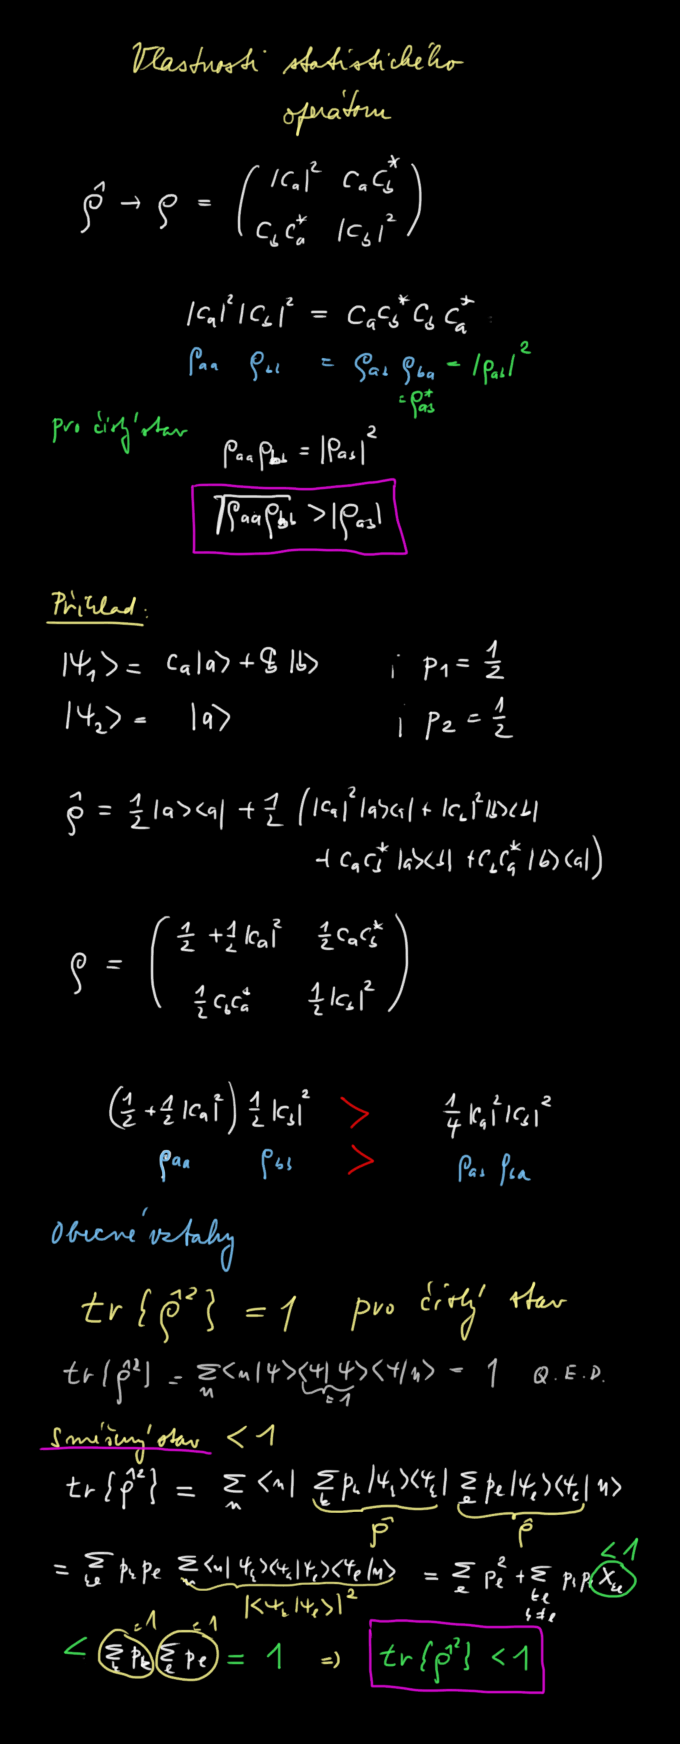 Vlastnosti statistického
operátoru
ρ̂ → ρ = ( |c_a|² c_a c_b^*
c_b c_a^* |c_b|² )
|c_a|² |c_b|² = c_a c_b^* c_b c_a^*
ρ_aa ρ_bb = ρ_ab ρ_ba = |ρ_ab|²
= ρ_ab^*
pro čistý stav
ρ_aa ρ_bb = |ρ_ab|²
√(ρ_aa ρ_bb) > |ρ_ab|
Příklad:
|ψ_1> = c_a |a> + c_b |b> ; p_1 = 1/2
|ψ_2> = |a> ; p_2 = 1/2
ρ̂ = 1/2 |a><a| + 1/2 (|c_a|² |a><a| + |c_b|² |b><b|
+ c_a c_b^* |a><b| + c_b c_a^* |b><a|)
ρ = ( 1/2 + 1/2 |c_a|² 1/2 c_a c_b^*
1/2 c_b c_a^* 1/2 |c_b|² )
(1/2 + 1/2 |c_a|²) 1/2 |c_b|² > 1/4 |c_a|² |c_b|²
ρ_aa ρ_bb > ρ_ab ρ_ba
Obecné vztahy
tr{ρ̂²} = 1 pro čistý stav
tr{ρ̂²} = Σ_n <n|ψ><ψ|ψ><ψ|n> = 1 Q.E.D.
=1
Smíšený stav < 1
tr{ρ̂²} = Σ_n <n| Σ_k p_k |ψ_k><ψ_k| Σ_l p_l |ψ_l><ψ_l| n>
ρ̂ ρ̂
= Σ_kl p_k p_l Σ_n <n|ψ_k><ψ_k|ψ_l><ψ_l|n> = Σ_l p_l² + Σ_{kl, k≠l} p_k p_l X_kl < 1
|<ψ_k|ψ_l>|²
=1 =1
< Σ_k p_k Σ_l p_l = 1 ⇒ tr{ρ̂²} < 1